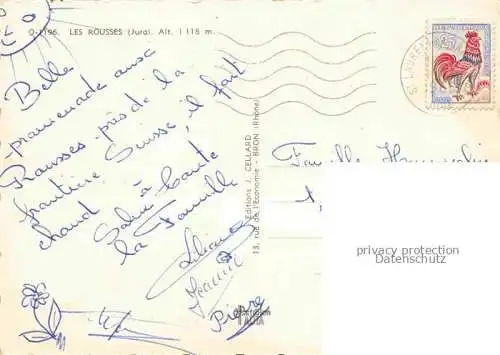 D-1196. LES ROUSSES (Jura). Alt. 1 118 m.
Belle
promenade aux
Rousses près de la
frontière Suisse, il fait
chaud
Salut à toute
la Famille
Liliane
Jeannie
Pierre
Editions J. CELLARD
13, rue de l'Economie - BRON (Rhône)
0,25
Famille
privacy protection
Datenschutz